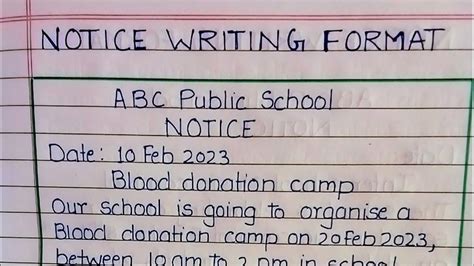 NOTICE WRITING FORMAT
ABC Public School
NOTICE
Date: 10 Feb 2023
Blood donation camp
Our school is going to organise a
Blood donation camp on 20 Feb 2023,
between 10 am to 2 pm in school